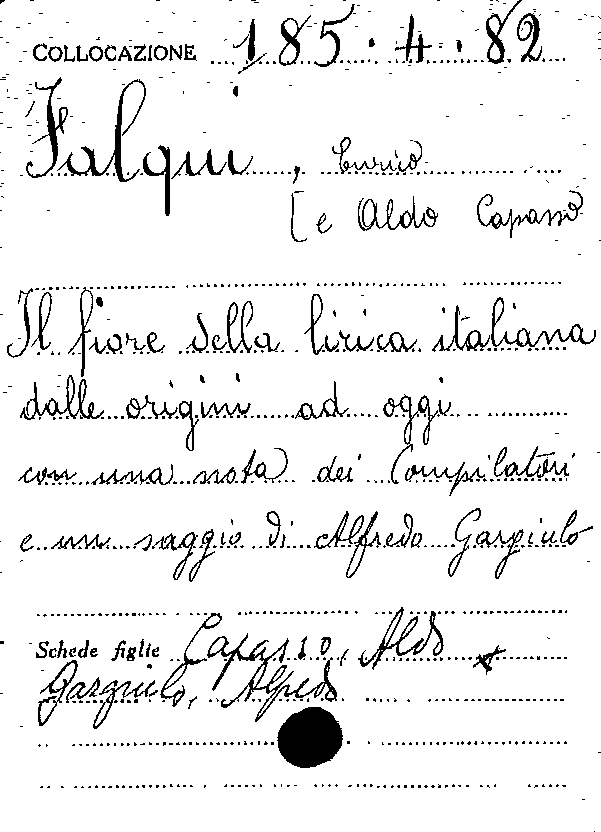 COLLOCAZIONE 185.4.82
Falqui, Enrico
[e Aldo Capasso
Il fiore della lirica italiana
dalle origini ad oggi
con una nota dei Compilatori
e un saggio di Alfredo Gargiulo
Schede figlie Capasso, Aldo
Gargiulo, Alfredo